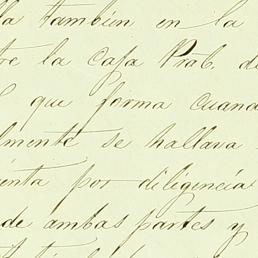 la tambien en la
re la casa Prab. de
l que forma cuand
lmente se hallava
enta por diligencia
de ambas partes y